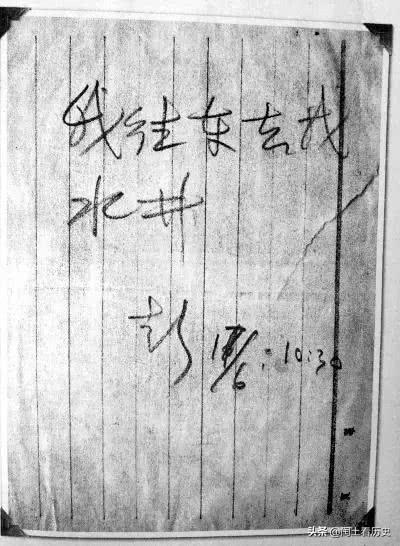 我往东去找
水井
彭 17/6:10:30
头条 @闰土看历史